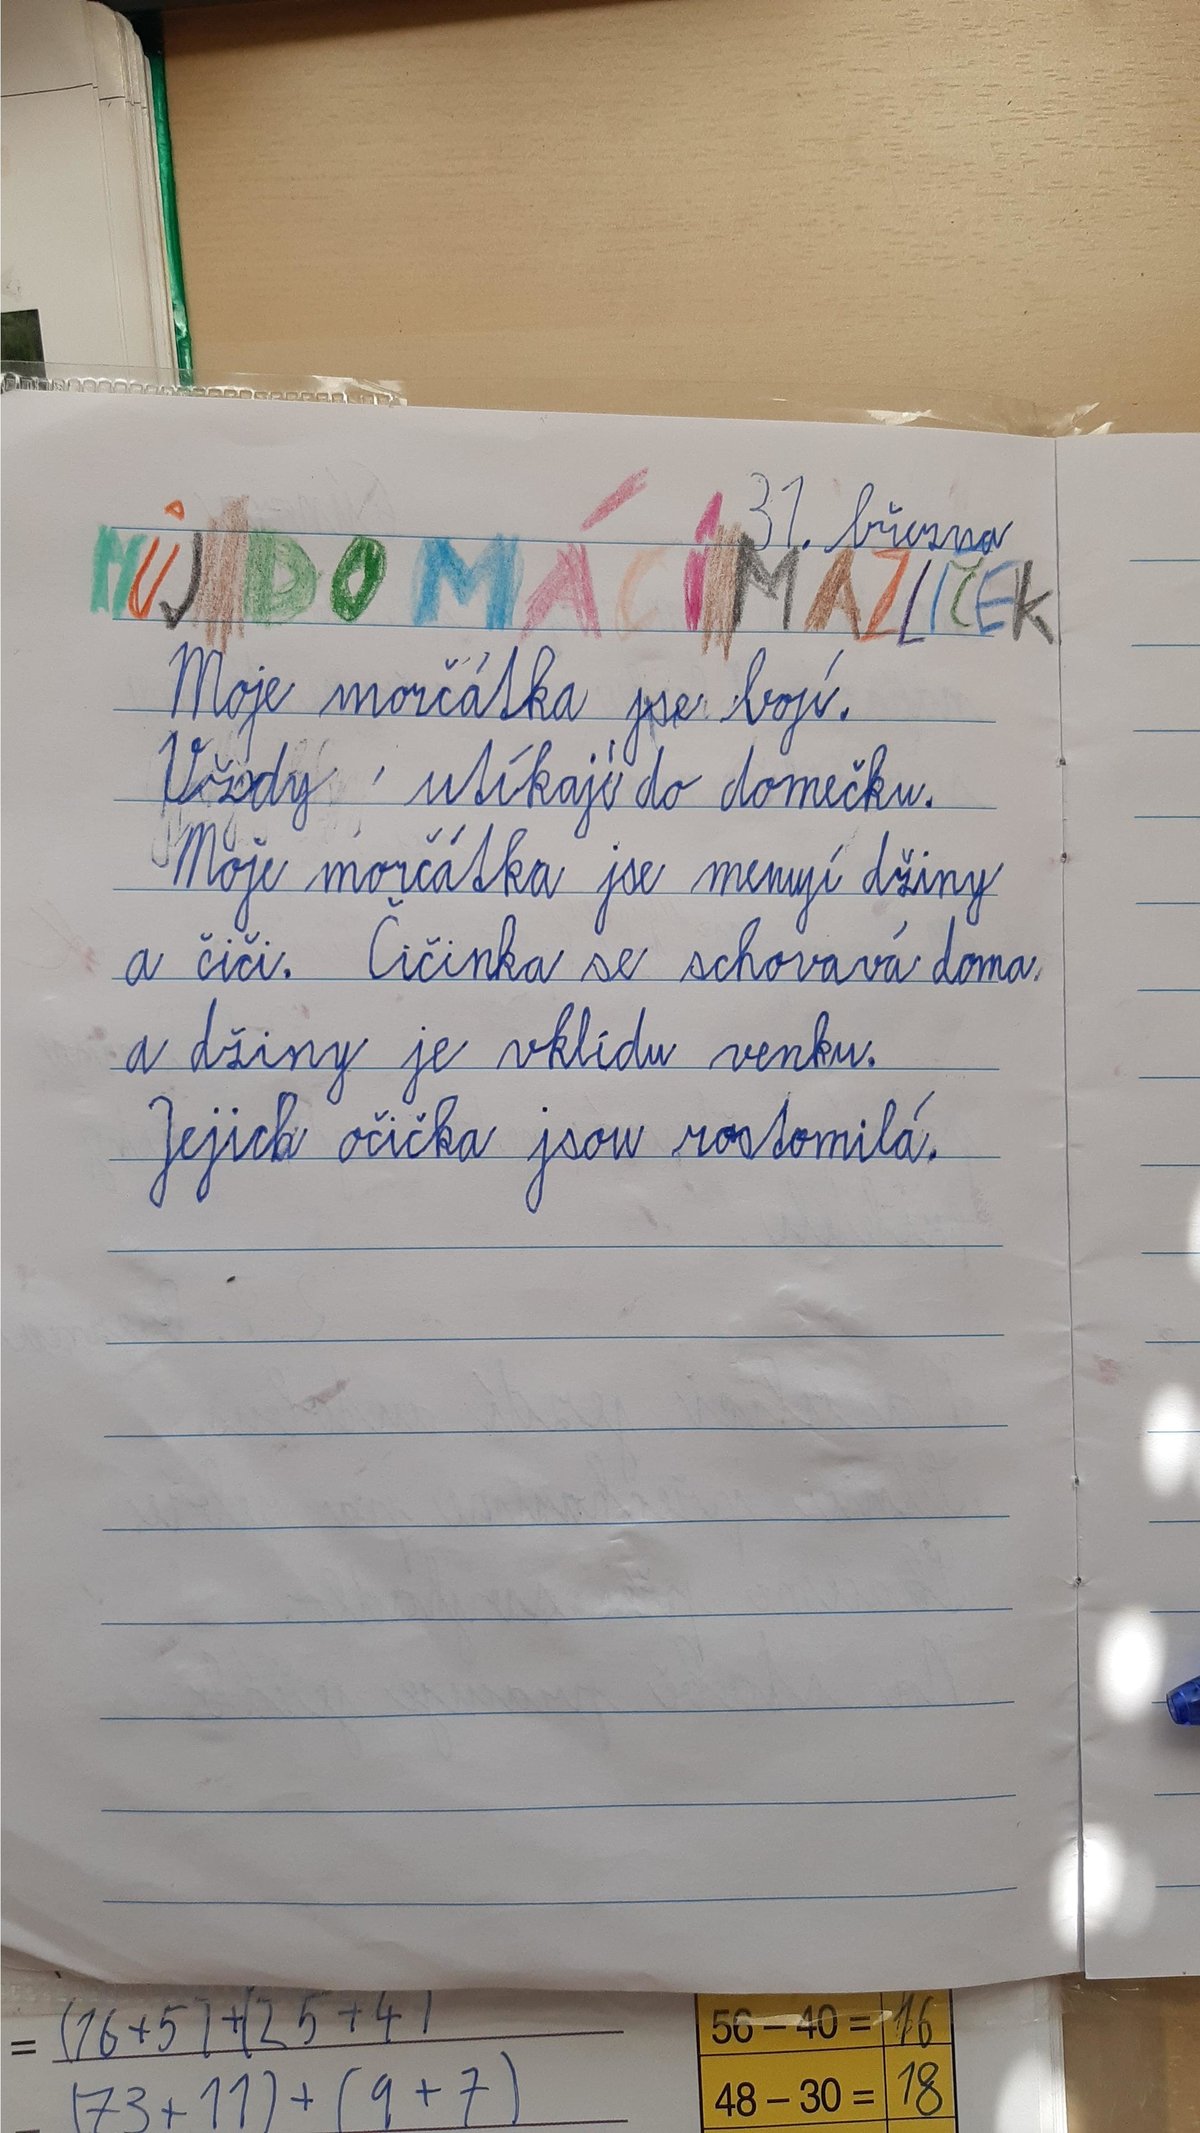 31. března
MŮJ DOMÁCÍ MAZLÍČEK
Moje morčátka jse bojí.
Vždy utíkají do domečku.
Moje morčátka jse menují džiny
a čiči. Čičinka se schovavá doma
a džiny je vklídu venku.
Jejich očička jsou rostomilá.
= (16+5)+(25+4)
(73+11)+(9+7)
56 – 40 = 16
48 – 30 = 18